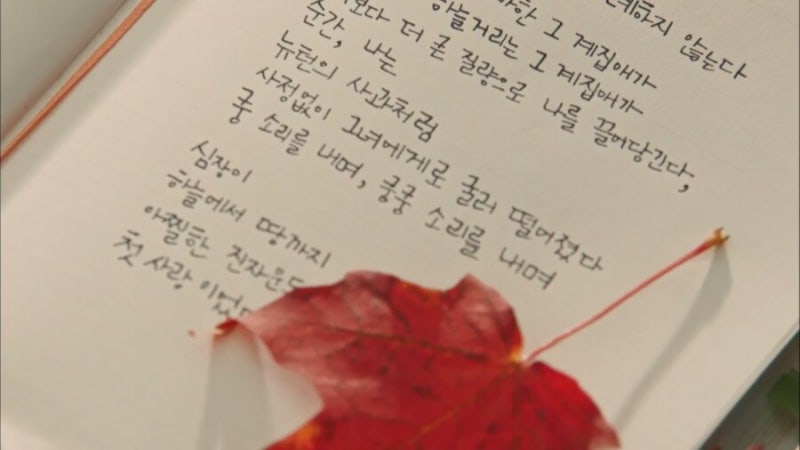 않는다
그 계집애가
하늘거리는 그 계집애가
더 큰 질량으로 나를 끌어당긴다,
순간, 나는
뉴턴의 사과처럼
사정없이 그녀에게로 굴러 떨어졌다
쿵 소리를 내며, 쿵쿵 소리를 내며
심장이
하늘에서 땅까지
아찔한
첫 사랑